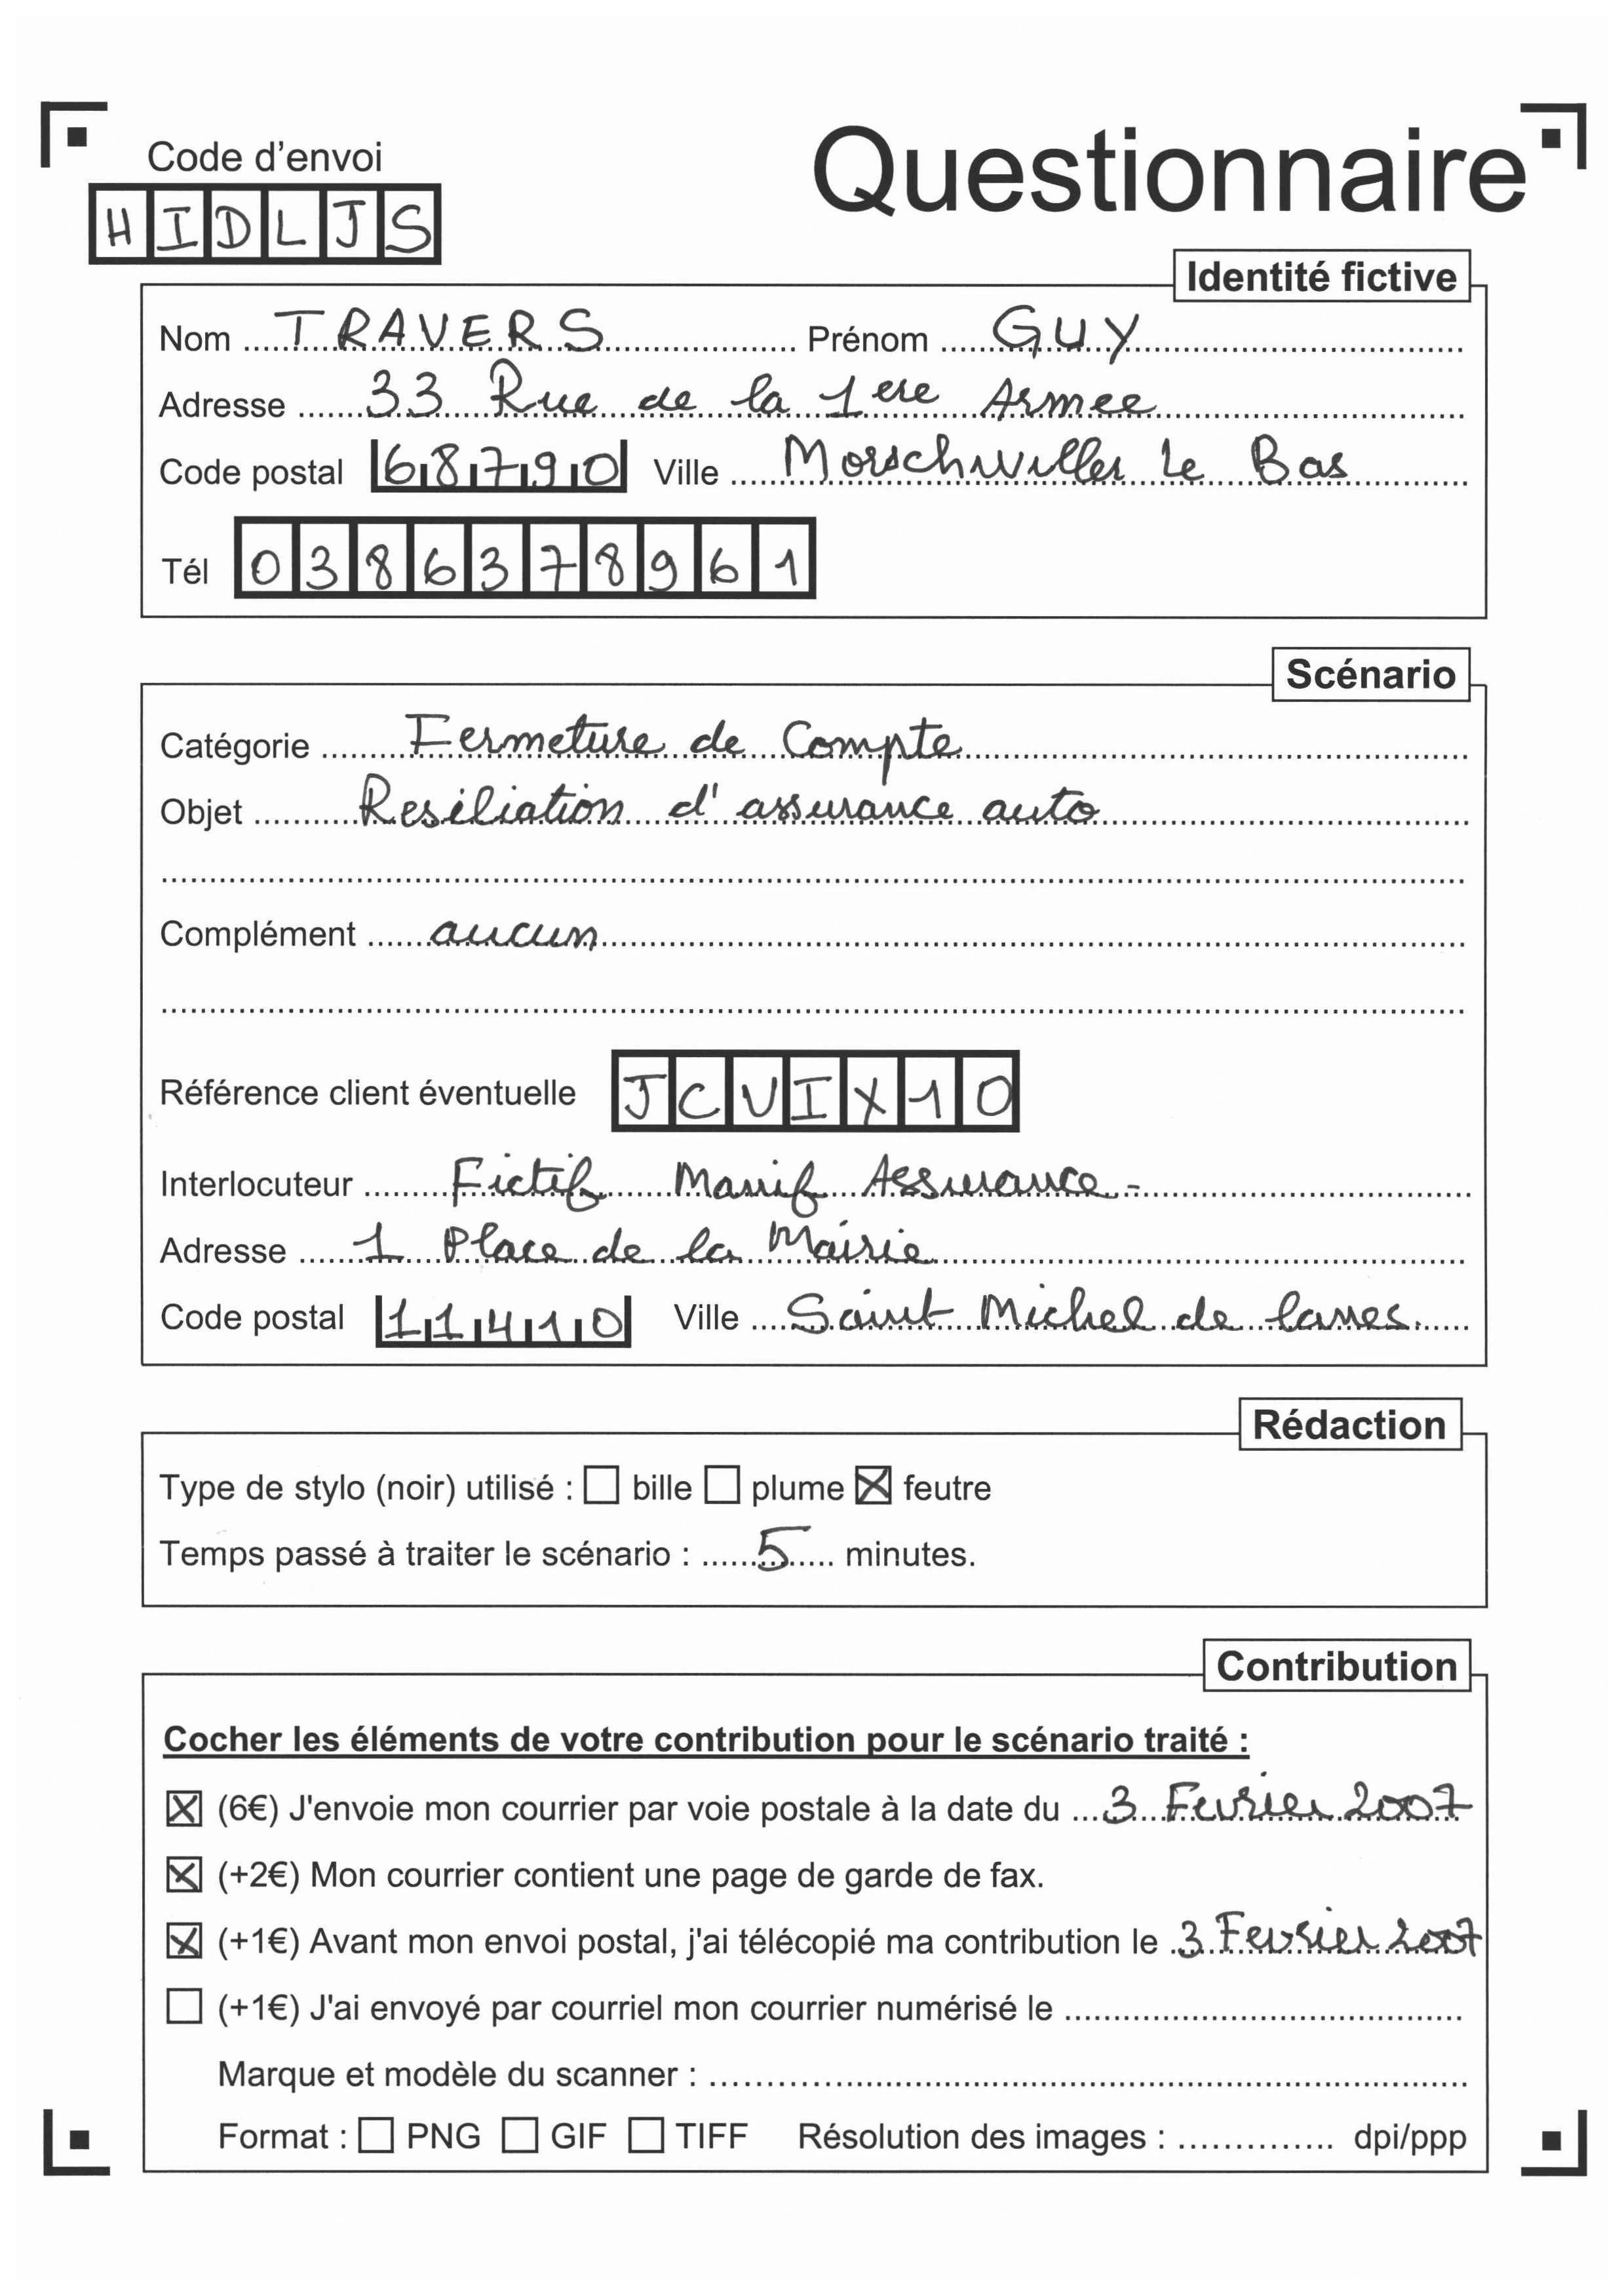 Code d'envoi
Questionnaire
HIDLJS
Identité fictive
Nom TRAVERS Prénom GUY
Adresse 33 Rue de la 1ere Armee
Code postal 68790 Ville Morschwiller Le Bas
Tél 0386378961
Scénario
Catégorie Fermeture de Compte
Objet Resiliation d'assurance auto
Complément aucun
Référence client éventuelle JCVIX10
Interlocuteur Fictif Manif Assurance-
Adresse 1 Place de la Mairie
Code postal 11410 Ville Saint Michel de lanes.
Rédaction
Type de stylo (noir) utilisé : ☐ bille ☐ plume ☒ feutre
Temps passé à traiter le scénario : 5 minutes.
Contribution
Cocher les éléments de votre contribution pour le scénario traité :
☒ (6€) J'envoie mon courrier par voie postale à la date du 3 Fevrier 2007
☒ (+2€) Mon courrier contient une page de garde de fax.
☒ (+1€) Avant mon envoi postal, j'ai télécopié ma contribution le 3 Fevrier 2007
☐ (+1€) J'ai envoyé par courriel mon courrier numérisé le
Marque et modèle du scanner :
Format : ☐ PNG ☐ GIF ☐ TIFF Résolution des images : dpi/ppp